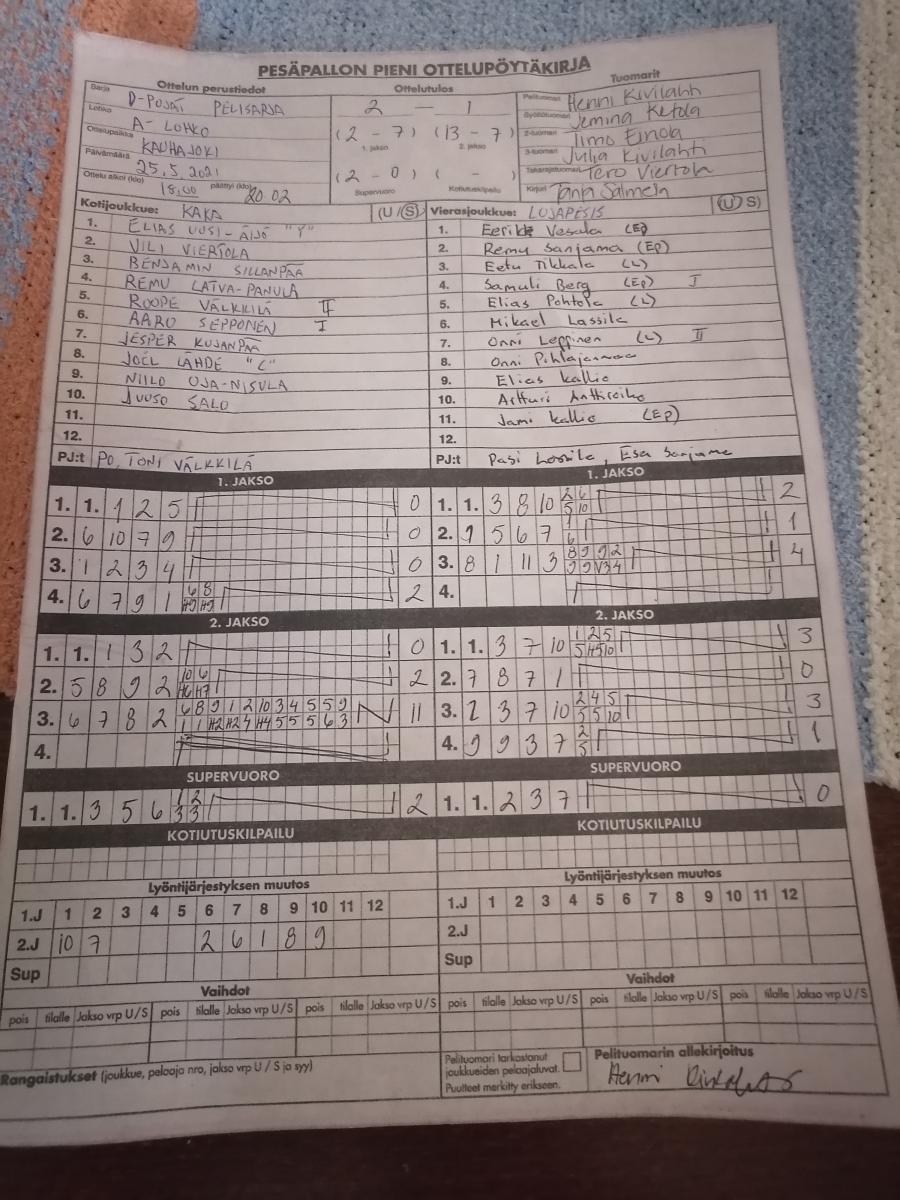 PESÄPALLON PIENI OTTELUPÖYTÄKIRJA
Ottelun perustiedot
Ottelutulos
Tuomarit
Sarja D-POJAT PELISARJA
Lohko A-LOHKO
Ottelupaikka KAUHAJOKI
Päivämäärä 25.5.2021
Ottelu alkoi (klo) 18.00 päättyi (klo) 20.02
2 — 1
(2 - 7) (13 - 7)
1. jakso 2. jakso
(2 - 0) ( - )
Supervuoro Kotiutuskilpailu
Pelituomari Henni Kivilahti
Syöttötuomari Jemina Ketola
2-tuomari Timo Einola
3-tuomari Julia Kivilahti
Takarajatuomari Tero Viertola
Kirjuri Tanja Salmela
Kotijoukkue: KAKA (U/S)
1. ELIAS UUSI-ÄIJÖ "Y"
2. VILI VIERTOLA
3. BENJAMIN SILLANPÄÄ
4. REMU LATVA-PANULA
5. ROOPE VÄLKKILÄ II
6. AARO SEPPONEN I
7. JESPER KUJANPÄÄ
8. JOEL LÄHDE "C"
9. NIILO OJA-NISULA
10. JUUSO SALO
11.
12.
PJ:t PO, TONI VÄLKKILÄ
Vierasjoukkue: LUJAPESIS (U/S)
1. Eerikk Vesala (Ep)
2. Remu Sanjama (Ep)
3. Eetu Tikkala (L)
4. Samuli Berg (Ep) I
5. Elias Pohtola (L)
6. Mikael Lassila
7. Onni Leppinen (L) II
8. Onni Pihlajanmaa
9. Elias Kallio
10. Artturi Anttiroiko
11. Jami Kallio (Ep)
12.
PJ:t Pasi Lassila, Esa Sanjama
1. JAKSO
1. 1. 1 2 5 0
2. 6 10 7 9 0
3. 1 2 3 4 0
4. 6 7 9 1 6 8 2
H9 H9
1. JAKSO
1. 1. 3 8 10 2 6 2
5 10
2. 9 5 6 7 1 1
6
3. 8 1 11 3 8 9 9 2 4
9 9 V3 4
4.
2. JAKSO
1. 1. 1 3 2 0
2. 5 8 9 2 10 6 2
H6 H7
3. 6 7 8 2 6 8 9 1 2 10 3 4 5 5 9 11
1 1 H2 H2 4 H4 5 5 5 6 3
4.
2. JAKSO
1. 1. 3 7 10 1 2 5 3
5 H5 10
2. 7 8 7 1 0
3. 2 3 7 10 2 4 5 3
5 5 10
4. 9 9 3 7 2 1
5
SUPERVUORO
1. 1. 3 5 6 1 2 2
3 3
SUPERVUORO
1. 1. 2 3 7 0
KOTIUTUSKILPAILU
KOTIUTUSKILPAILU
Lyöntijärjestyksen muutos
1.J 1 2 3 4 5 6 7 8 9 10 11 12
2.J 10 7 2 6 1 8 9
Sup
Lyöntijärjestyksen muutos
1.J 1 2 3 4 5 6 7 8 9 10 11 12
2.J
Sup
Vaihdot
pois tilalle Jakso vrp U/S pois tilalle Jakso vrp U/S pois tilalle Jakso vrp U/S
Vaihdot
pois tilalle Jakso vrp U/S pois tilalle Jakso vrp U/S pois tilalle Jakso vrp U/S
Rangaistukset (joukkue, pelaaja nro, jakso vrp U / S ja syy)
Pelituomari tarkastanut
joukkueiden pelaajaluvat.
Puutteet merkitty erikseen.
Pelituomarin allekirjoitus
Henni